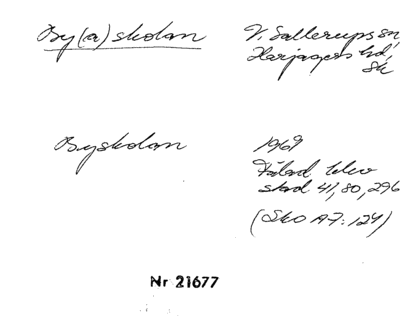 By(a)skolan
V. Sallerups sn,
Harjagers hd,
Sk
Byskolan
1969
skod 41,80,296
(Sko A7:124)
Nr 21677